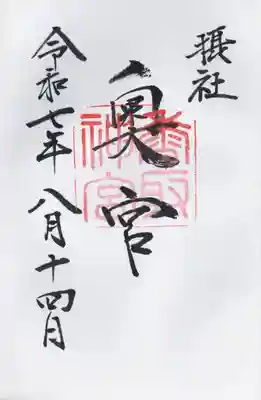 摂社
奥宮
香取
神宮
令和七年八月十四日